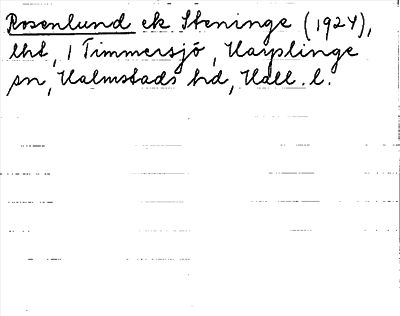 Rosenlund ek Steninge (1924),
lht, 1 Timmersjö, Harplinge
sn, Halmstads hd, Hall. l.